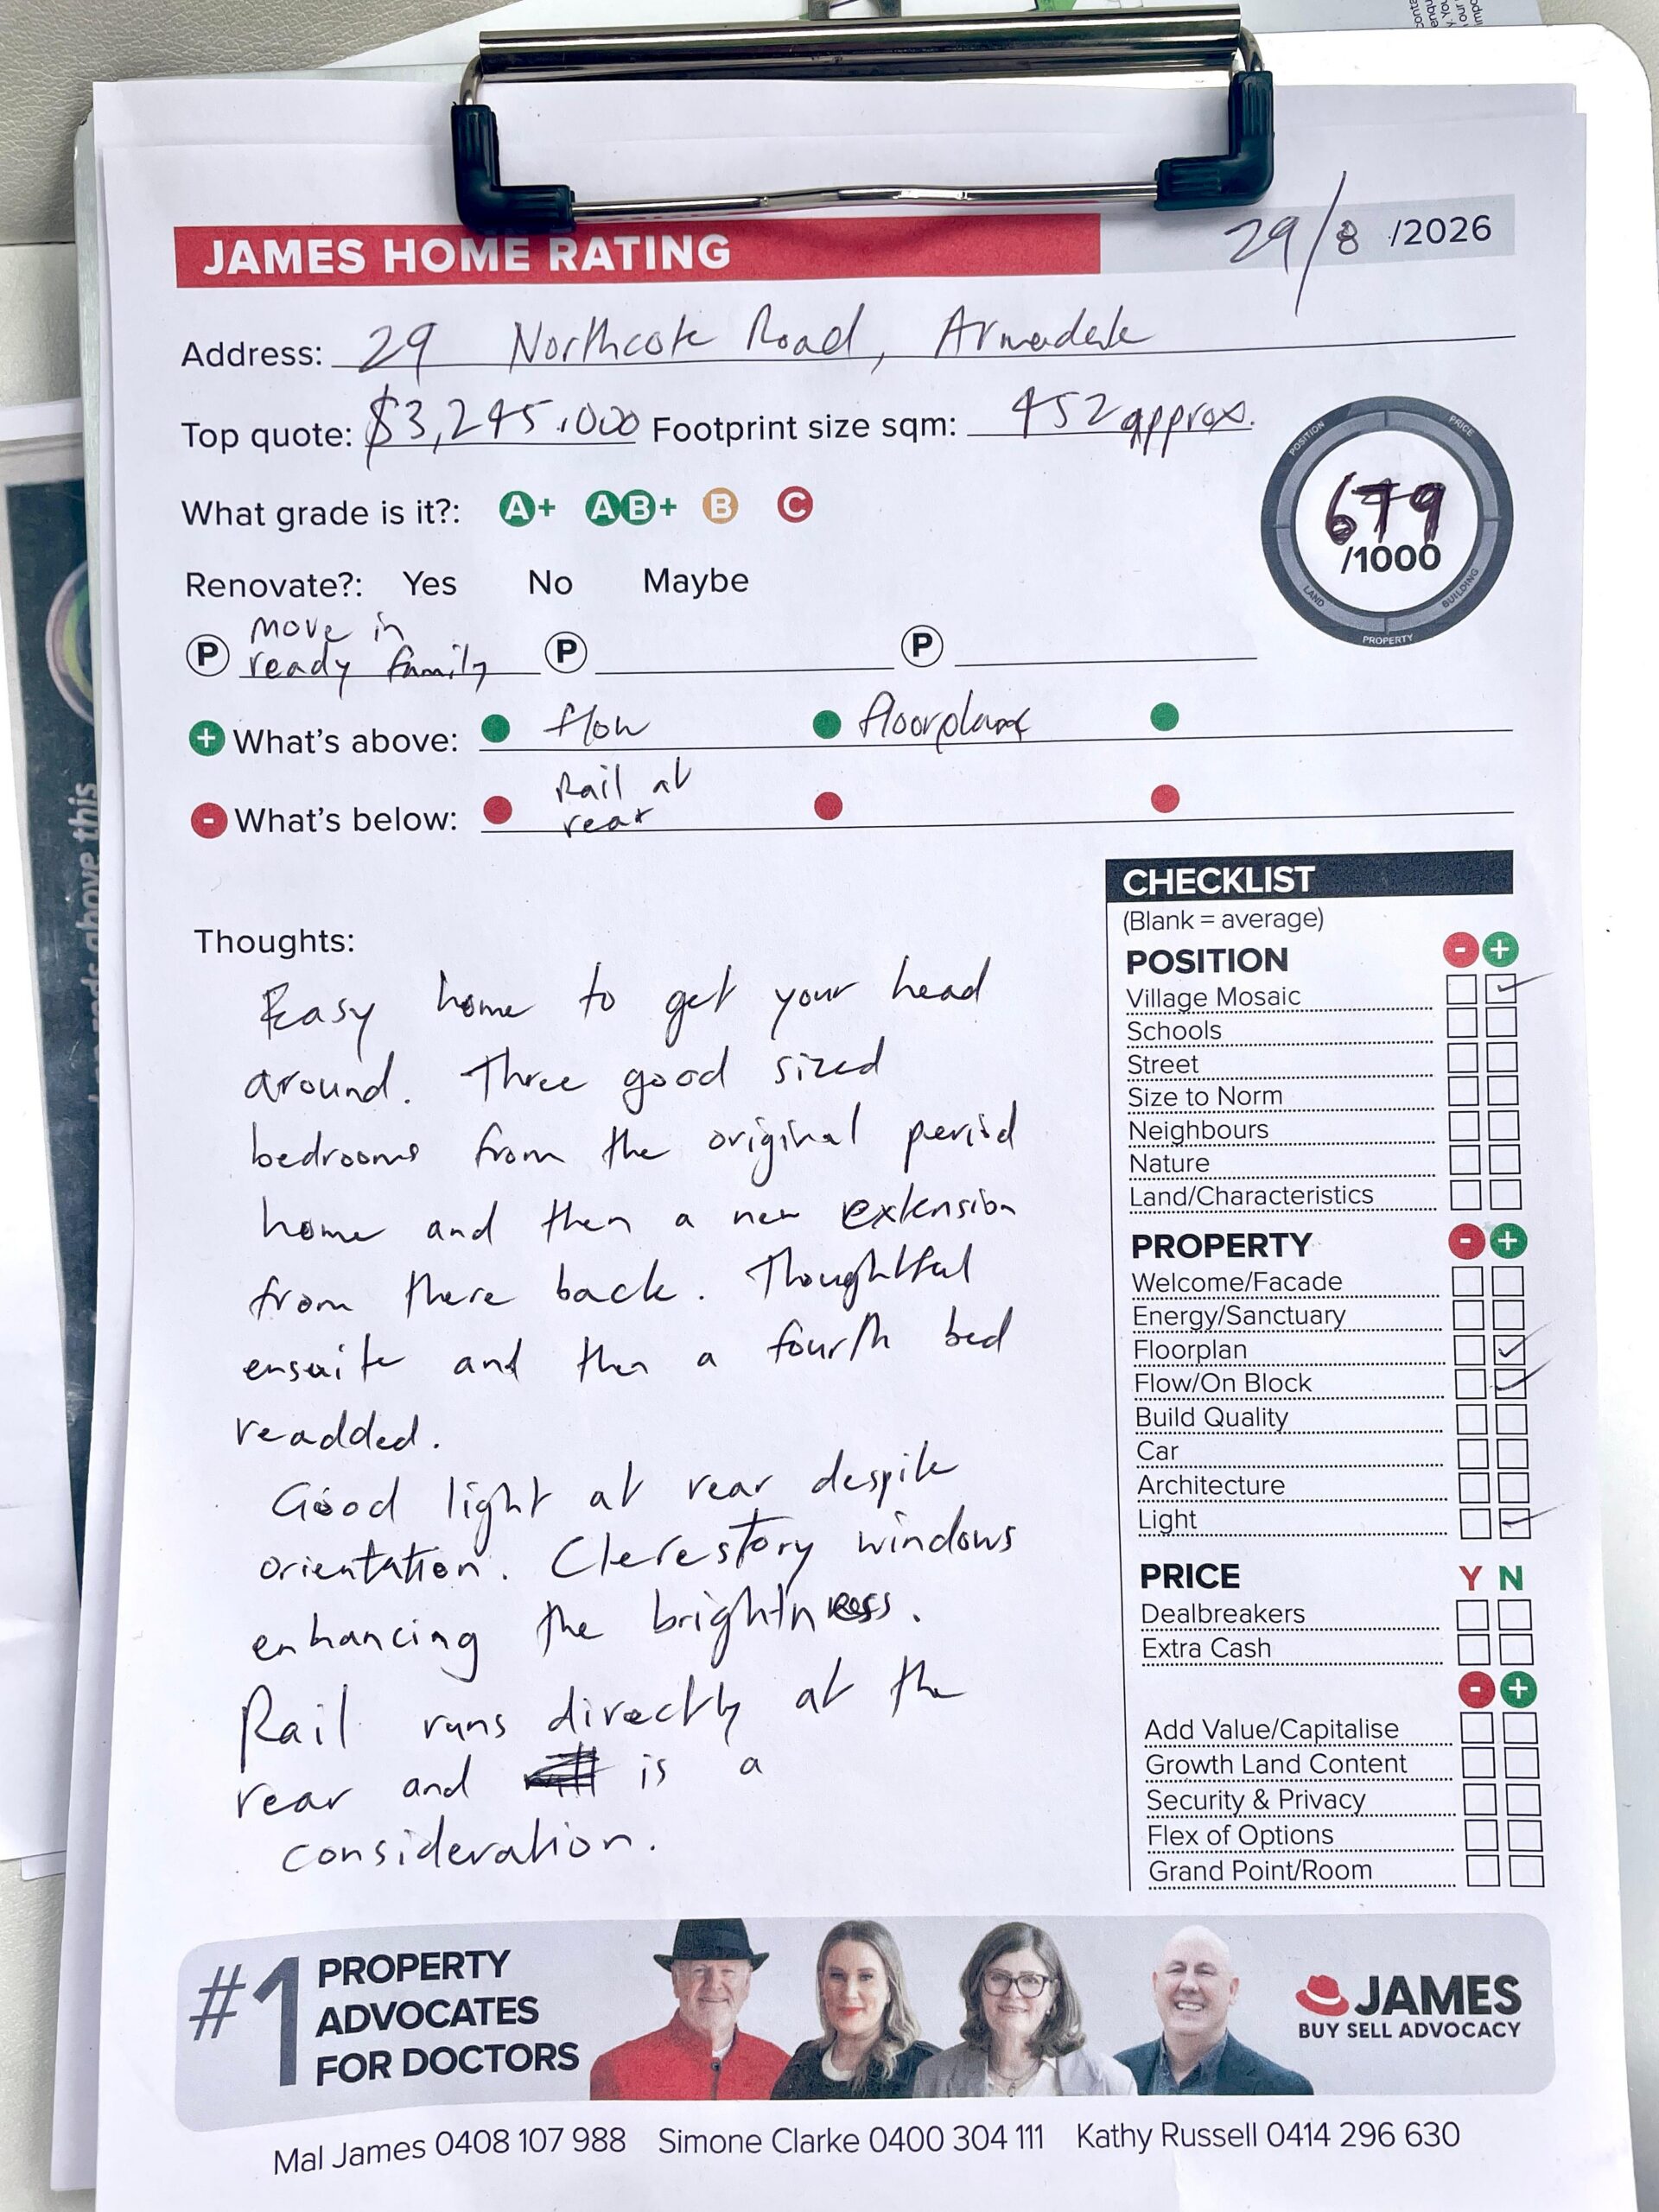 JAMES HOME RATING
29/8 /2026
Address: 29 Northcote Road, Armadale
Top quote: $3,245,000 Footprint size sqm: 452 approx.
What grade is it?: A+ AB+ B C
POSITION PRICE
679
/1000
LAND BUILDING
PROPERTY
Renovate?: Yes No Maybe
P move in
ready family P P
+ What's above: flow floorplan
- What's below: Rail at
rear
CHECKLIST
(Blank = average)
POSITION - +
Village Mosaic
Schools
Street
Size to Norm
Neighbours
Nature
Land/Characteristics
PROPERTY - +
Welcome/Facade
Energy/Sanctuary
Floorplan
Flow/On Block
Build Quality
Car
Architecture
Light
PRICE Y N
Dealbreakers
Extra Cash
- +
Add Value/Capitalise
Growth Land Content
Security & Privacy
Flex of Options
Grand Point/Room
Thoughts:
Easy home to get your head
around. Three good sized
bedrooms from the original period
home and then a new extension
from there back. Thoughtful
ensuite and then a fourth bed
readded.
Good light at rear despite
orientation. Clerestory windows
enhancing the brightness.
Rail runs directly at the
rear and is a
consideration.
#1 PROPERTY
ADVOCATES
FOR DOCTORS
JAMES
BUY SELL ADVOCACY
Mal James 0408 107 988 Simone Clarke 0400 304 111 Kathy Russell 0414 296 630